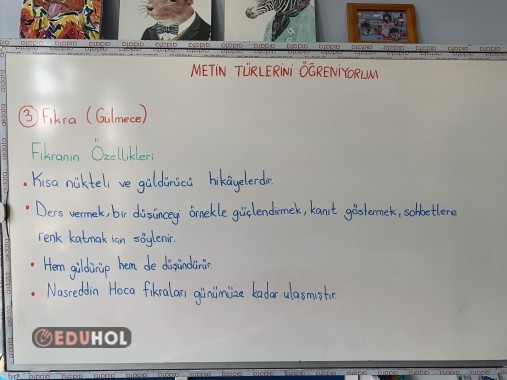 METİN TÜRLERİNİ ÖĞRENİYORUM
3 Fıkra (Gülmece)
Fıkranın Özellikleri
• Kısa nükteli ve güldürücü hikâyelerdir.
• Ders vermek, bir düşünceyi örnekle güçlendirmek, kanıt göstermek, sohbetlere
renk katmak için söylenir.
• Hem güldürüp hem de düşündürür.
• Nasreddin Hoca fıkraları günümüze kadar ulaşmıştır.
EDUHOL